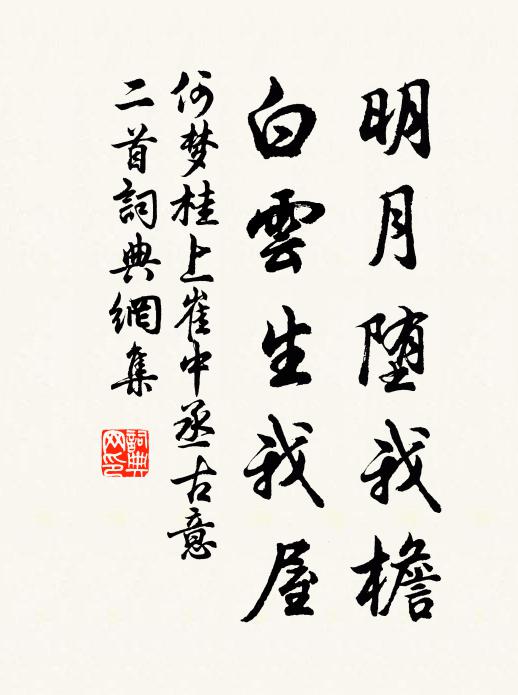 明月堕我檐
白雲生我屋
何梦桂上崔中丞古意
二首詞典網集
詞典
网印